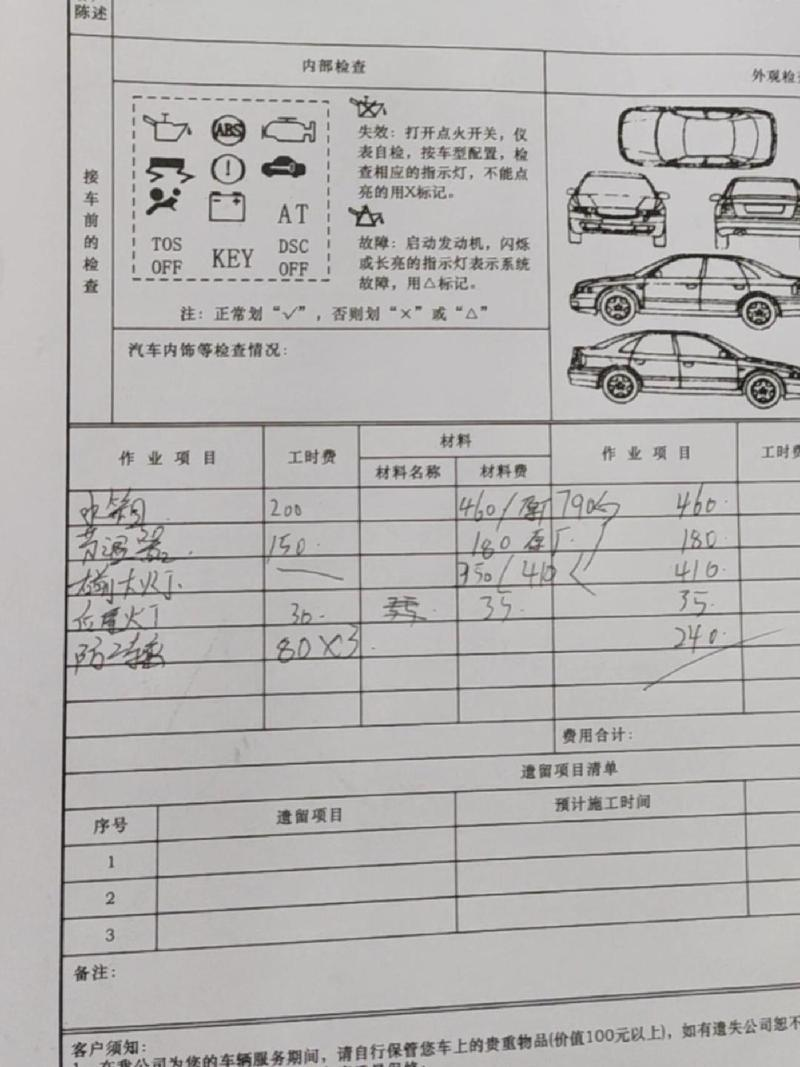 陈述
内部检查
外观检
接车前的检查
ABS
AT
TOS OFF
KEY
DSC OFF
失效：打开点火开关，仪
表自检，按车型配置，检
查相应的指示灯，不能点
亮的用X标记。
故障：启动发动机，闪烁
或长亮的指示灯表示系统
故障，用△标记。
注：正常划“√”，否则划“×”或“△”
汽车内饰等检查情况：
作业项目 工时费 材料 作业项目 工时
材料名称 材料费
水箱 200 460/原厂790 460
节温器 150 180原厂 180
大火丁 350/410 410
位置火丁 30 35 35
防 80X3 240
费用合计：
遗留项目清单
序号 遗留项目 预计施工时间
1
2
3
备注：
客户须知：
1、在我公司为您的车辆服务期间，请自行保管您车上的贵重物品(价值100元以上)，如有遗失公司恕不